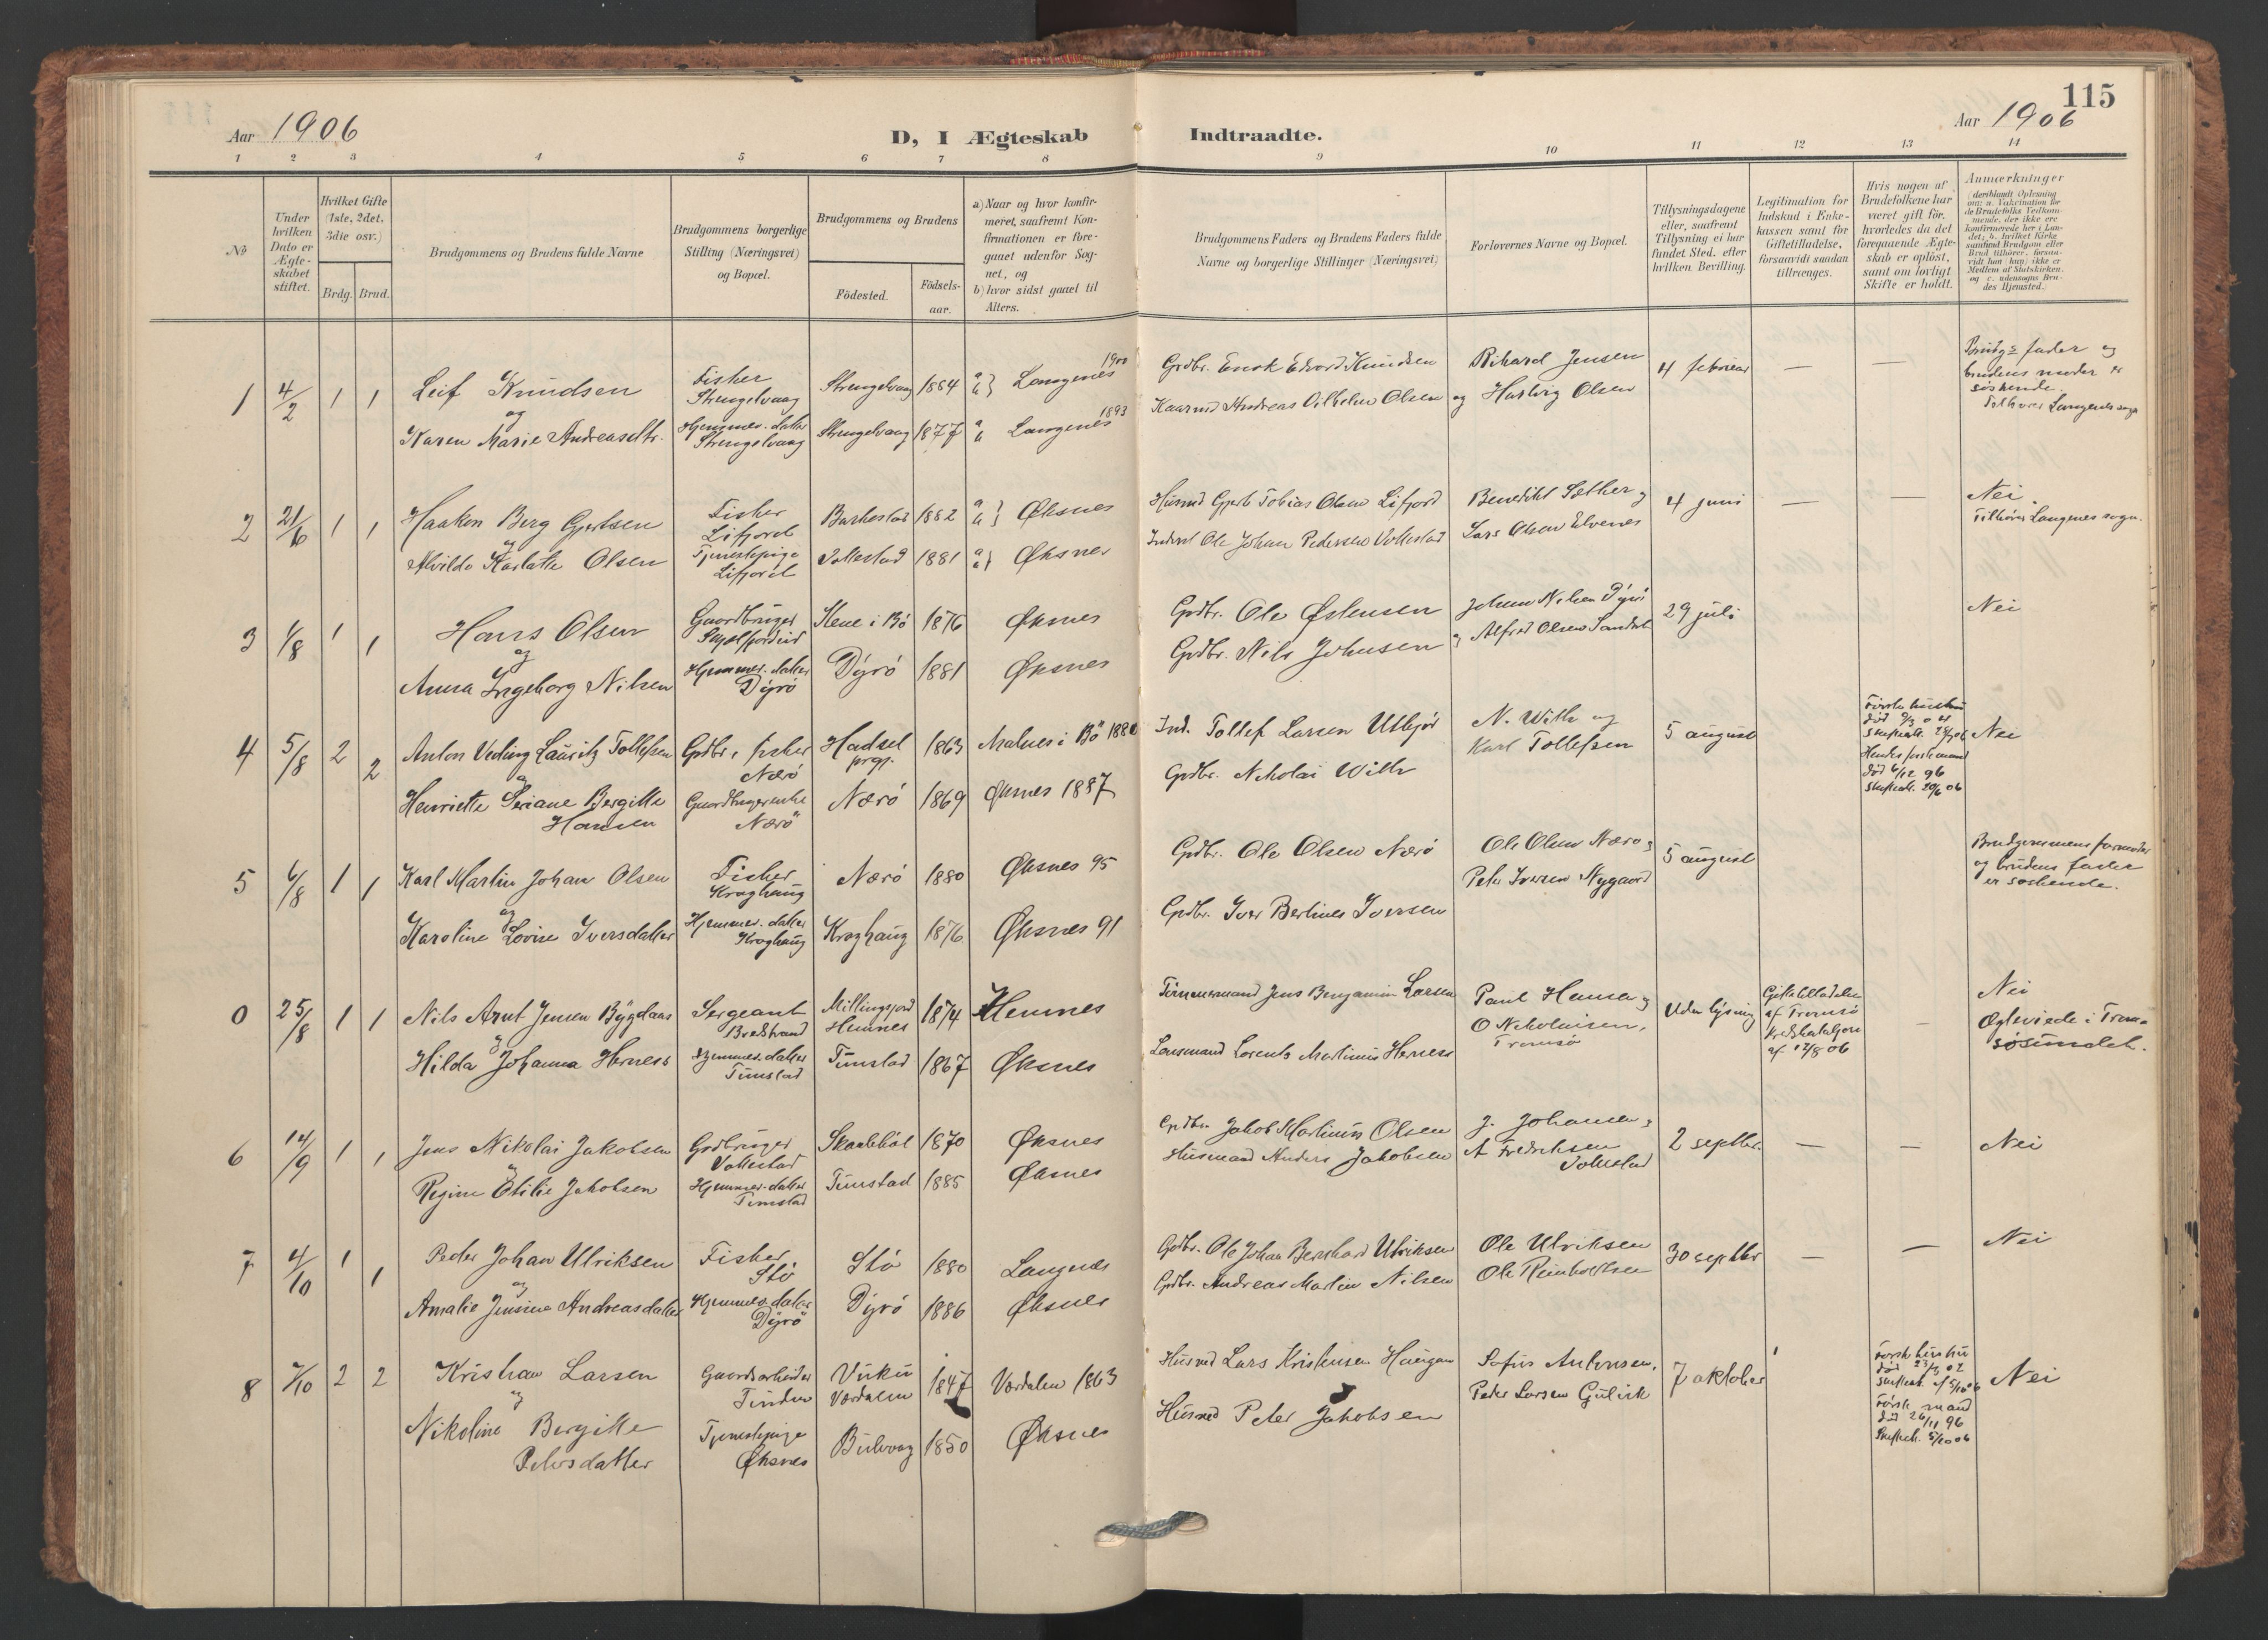 115
Aar 1906
D, I Ægteskab Indtraadte.
Aar 1906
1 2 3 4 5 6 7 8 9 10 11 12 13 14
No
Under hvilken Dato er Ægteskabet stiftet.
Hvilket Gifte (1ste, 2det, 3die osv.)
Brdg. Brud.
Brudgommens og Brudens fulde Navne
Brudgommens borgerlige Stilling (Næringsvei) og Bopæl.
Brudgommens og Brudens
Födested.
Födselsaar.
a) Naar og hvor konfirmeret, saafremt Konfirmationen er foregaaet udenfor Sognet, og
b) hvor sidst gaaet til Alters.
Brudgommens Faders og Brudens Faders fulde Navne og borgerlige Stillinger (Næringsvei)
Forlovernes Navne og Bopæl.
Tillysningsdagene eller, saafremt Tillysning ei har fundet Sted, efter hvilken Bevilling.
Legitimation for Indskud i Enkekassen samt for Giftetilladelse, forsaavidt saadan tiltrænges.
Hvis nogen af Brudefolkene har været gift för, hvorledes da det foregaaende Ægteskab er oplöst, samt om lovligt Skifte er holdt.
Anmærkninger
1 4/2 1 1 Leif Knudsen
og
Karen Marie Andreasdtr.
Fisker
Strengelvaag
Hjemmev. datter
Strengelvaag
Strengelvaag 1884 Langenes 1900
Strengelvaag 1877 Langenes 1893
Grdbr. Enok Edvard Knudsen
Kaarmd Andreas Vilhelm Olsen
Rikard Jensen
og Hartvig Olsen
4 februar — —
Brudg.s fader og
brudens moder er
söskende.
Tilhører Langenes sogn
2 21/6 1 1 Haakon Berg Gjertsen
og
Alvilde Karlotte Olsen
Fisker
Lifjord
Tjenestepige
Lifjord
Barkestad 1882 Øksnes
Vottestad 1881 Øksnes
Husmd Gjert Tobias Olsen Lifjord
Inderst Ole Johan Pedersen Vottestad
Benedikt Sæther og
Lars Olsen Elvenes
4 juni — —
Nei.
Tilhører Langenes sogn.
3 1/8 1 1 Hans Olsen
og
Anna Ingeborg Nilsen
Gaardbruger
Hjemmev. datter
Dyrö
i Bö 1876 Øksnes
Dyrö 1881 Øksnes
Grdbr. Ole Østensen
Grdbr. Nils Johnsen
Johan Nilsen Dyrö
og Alfred Olsen
29 juli
Nei
4 5/8 2 2 Anton Lauritz Tollefsen
og
Henriette Seriane Bergitte
Hansen
Grdbr., fisker
Nærö
Gaardbrugerenke
Nærö
Hadsel
prgj. 1863 Malnes i Bö 1880
Nærö 1869 Øksnes 1887
Ind. Tollef Larsen Utbjör
Grdbr. Nikolai With
N. With og
Karl Tollefsen
5 august
Første hustru
död 9/3 04
Hendes første mand
död 6/12 96
skifteatt. 20/6 06
Nei
5 6/8 1 1 Karl Martin Johan Olsen
og
Karoline Lovise Iversdatter
Fisker
Kroghaug
Hjemmev. datter
Kroghaug
Nærö 1880 Øksnes 95
Kroghaug 1876 Øksnes 91
Grdbr. Ole Olsen Nærö
Grdbr. Iver Bertinus Iversen
Ole Olsen Nærö og
Peter Iversen Nygaard
5 august
Brudgommens farmoder
og brudens fader
er söskende.
0 25/8 1 1 Nils Arnt Jensen Bygdaas
og
Hilda Johanna Herness
Sergeant
Bredstrand
Hjemmev. datter
Tunstad
Hemnes 1874 Hemnes
Tunstad 1867 Øksnes
Tömmermand Jens Benjamin Larsen
Lensmand Lorentz Martinus Herness
Paul Hansen og
O Nikolaisen,
Tromsö
Uden lysning
Giftetilladelse
af Tromsö
af 17/8 06
—
Nei
Ægteviede i Tromsösundet.
6 14/9 1 1 Jens Nikolai Jakobsen
og
Regine Otilie Jakobsen
Grdbruger
Vottestad
Hjemmev. datter
Tunstad
1870 Øksnes
Tunstad 1885 Øksnes
Grdbr. Jakob Martinus Olsen
Husmand Anders Jakobsen
J. Johansen og
A Fredriksen
Vottestad
2 septbr. — —
Nei
7 4/10 1 1 Peder Johan Ulriksen
og
Amalie Jensine Andreasdatter
Fisker
Stö
Hjemmev. datter
Dyrö
Stö 1880 Langnes
Dyrö 1886 Øksnes
Grdbr. Ole Johan Bernhard Ulriksen
Grdbr. Andreas Martin Nilsen
Ole Ulriksen
Ole Reinholdtsen
30 septbr — —
Nei
8 7/10 2 2 Kristian Larsen
og
Nikoline Bergitte
Petersdatter
Gaardsarbeider
Tinden
Tjenestepige
Øksnes
Vuku
Værdalen 1847 Værdalen 1863
1850 Øksnes
Husmd Lars Kristensen Haugan
Husmd Peter Jakobsen
Sofus Antonsen,
Peder Larsen Gulvik
7 oktober
Første hustru
död 23/3 02
Første mand
död 26/11 96
Skifteatt. 5/10 06
Nei